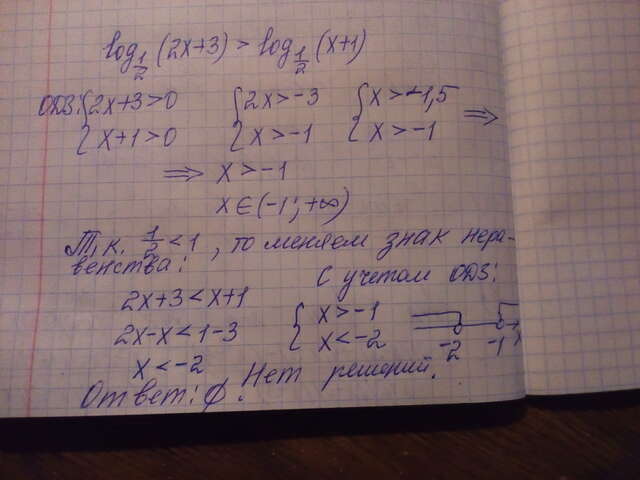 log_{1/2}(2x+3) > log_{1/2}(x+1)
ОДЗ: {2x+3>0 {2x>-3 {x>-1,5
{x+1>0 {x>-1 {x>-1 ⟹
⟹ x>-1
x∈(-1; +∞)
Т.к. 1/2<1, то меняем знак нера-
венства:
2x+3<x+1
2x-x<1-3
x<-2
С учетом ОДЗ:
{x>-1
{x<-2
-2 -1 x
Ответ: ∅. Нет решений.